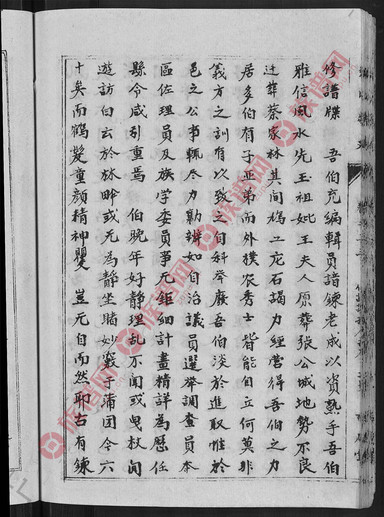 修譜牒 吾伯充編輯員諳鍊老成以資熟手吾伯
雅信風水先玉祖妣王夫人原葬張公城地勢不良
迁葬蔡家林其間鳩工庀石竭力經營得吾伯之力
居多伯有子亚弟而外樸农秀士皆能自立何莫非
義方之訓有以致之自科举廢吾伯淡於進取惟於
邑之公事輒尽力勷辨如自治議員選举調查員本
區佐理員及族学委員事无鉅細計畫精詳為歷任
縣令咸引重焉 伯晚年好静理乱不聞或曳杖閒
遊訪白云於林畔或无為静坐賭妙叢于蒲团今六
十矣而鶴髮童颜精神矍 豈无自而然耶古有鍊
族譜网